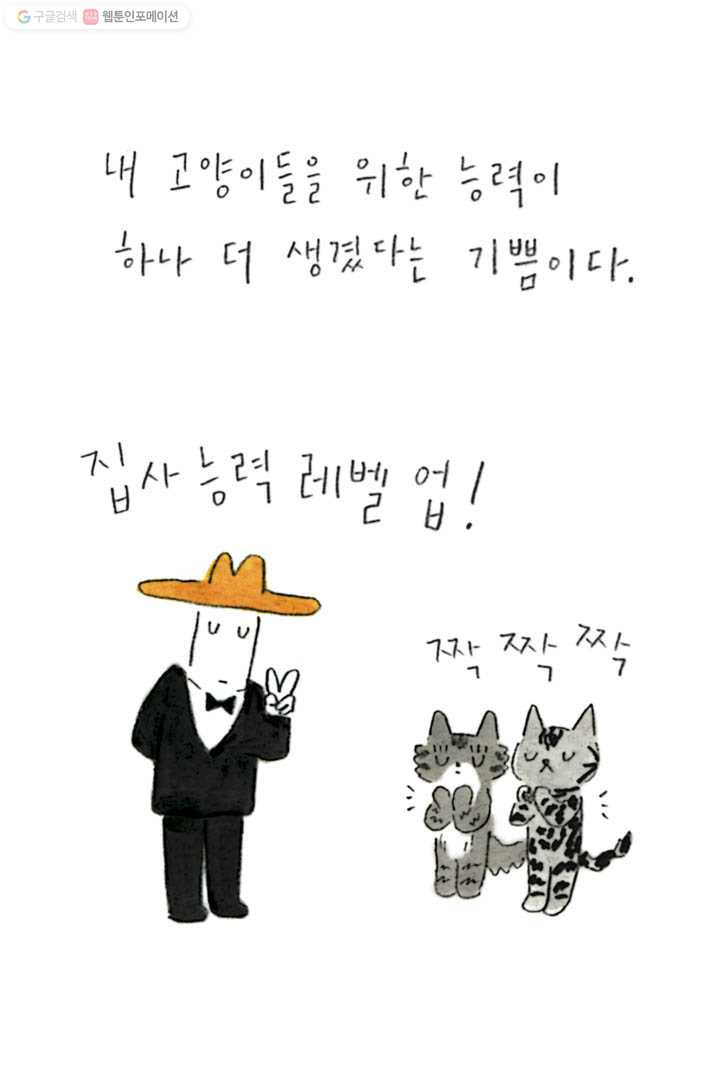 구글검색 웹툰인포메이션
내 고양이들을 위한 능력이
하나 더 생겼다는 기쁨이다.
집사능력 레벨 업!
짝 짝 짝